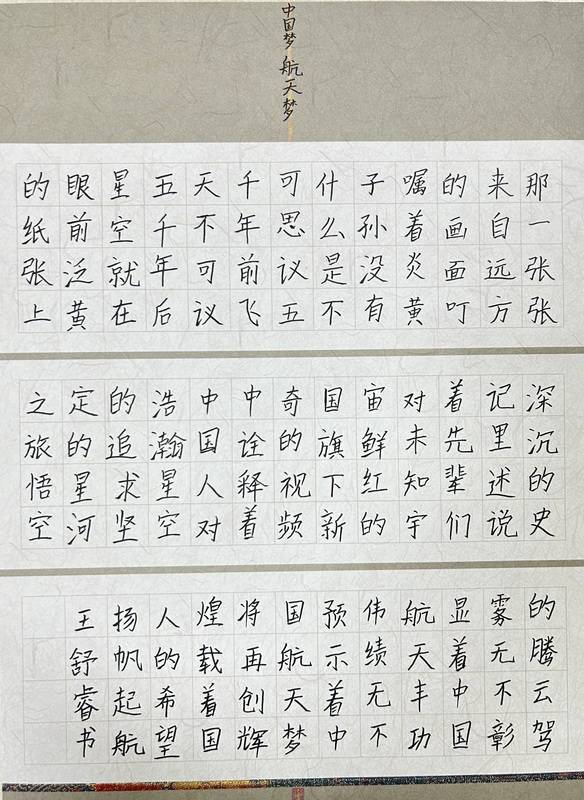 中国梦 航天梦
那一张张
来自远方
的画面叮
嘱着炎黄
子孙没有
什么是不
可思议五
千年前飞
天不可议
五千年后
星空就在
眼前泛黄
的纸张上
深沉的史
记里述说
着先辈们
对未知宇
宙鲜红的
国旗下新
奇的视频
中诠释着
中国人对
浩瀚星空
的追求坚
定的星河
之旅悟空
的腾云驾
雾无不彰
显着中国
航天丰功
伟绩无不
预示着中
国航天梦
将再创辉
煌载着国
人的希望
扬帆起航
王舒睿书